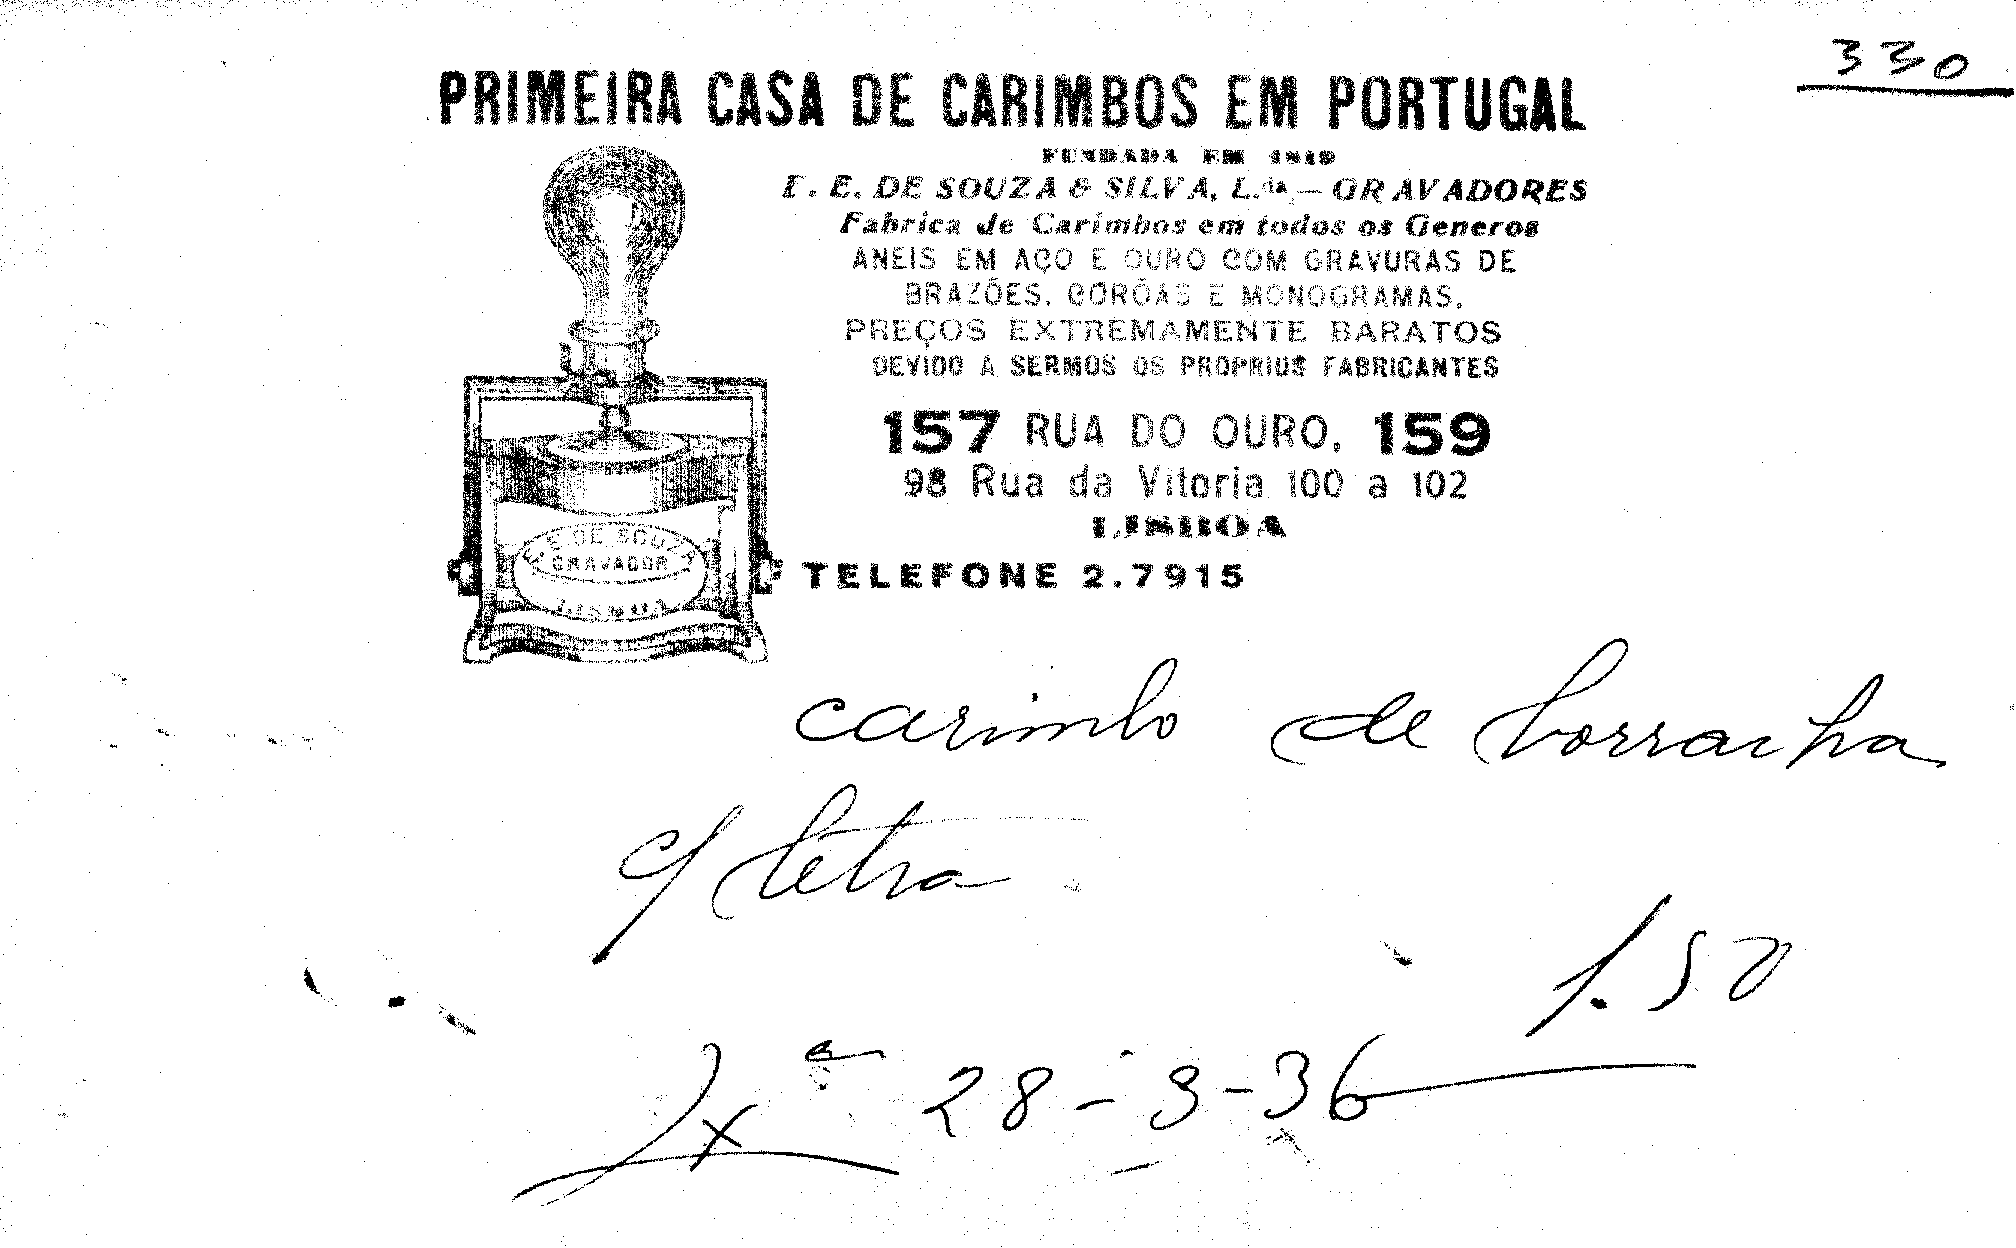 330
PRIMEIRA CASA DE CARIMBOS EM PORTUGAL
FUNDADA EM
E. DE SOUZA & SILVA, L.da — GRAVADORES
Fabrica de Carimbos em todos os Generos
ANEIS EM AÇO E OURO COM GRAVURAS DE
BRAZÕES, CORÔAS E MONOGRAMAS.
PREÇOS EXTREMAMENTE BARATOS
DEVIDO A SERMOS OS PROPRIOS FABRICANTES
157 RUA DO OURO, 159
98 Rua da Vitoria 100 a 102
LISBOA
TELEFONE 2.7915
E. E DE SOUZA
GRAVADOR
LISBOA
carimbo de borracha
c/ letra
1.50
Lx.ª 28-3-36